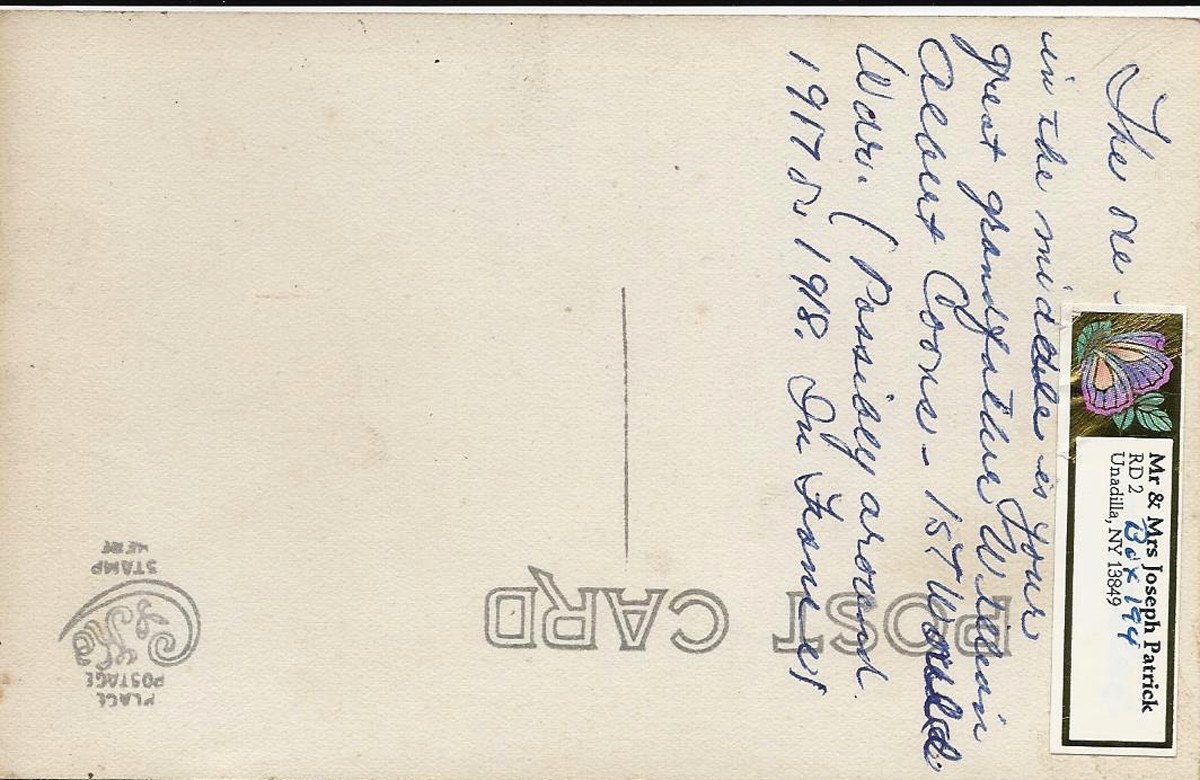 The one -
in the middle is your
great grandfather William
Albert Coons - 1st World
War. (Possibly around
1917 or 1918. In France)
Mr & Mrs Joseph Patrick
RD 2 Box 194
Unadilla, NY 13849
POST CARD
PLACE
POSTAGE
STAMP
HERE